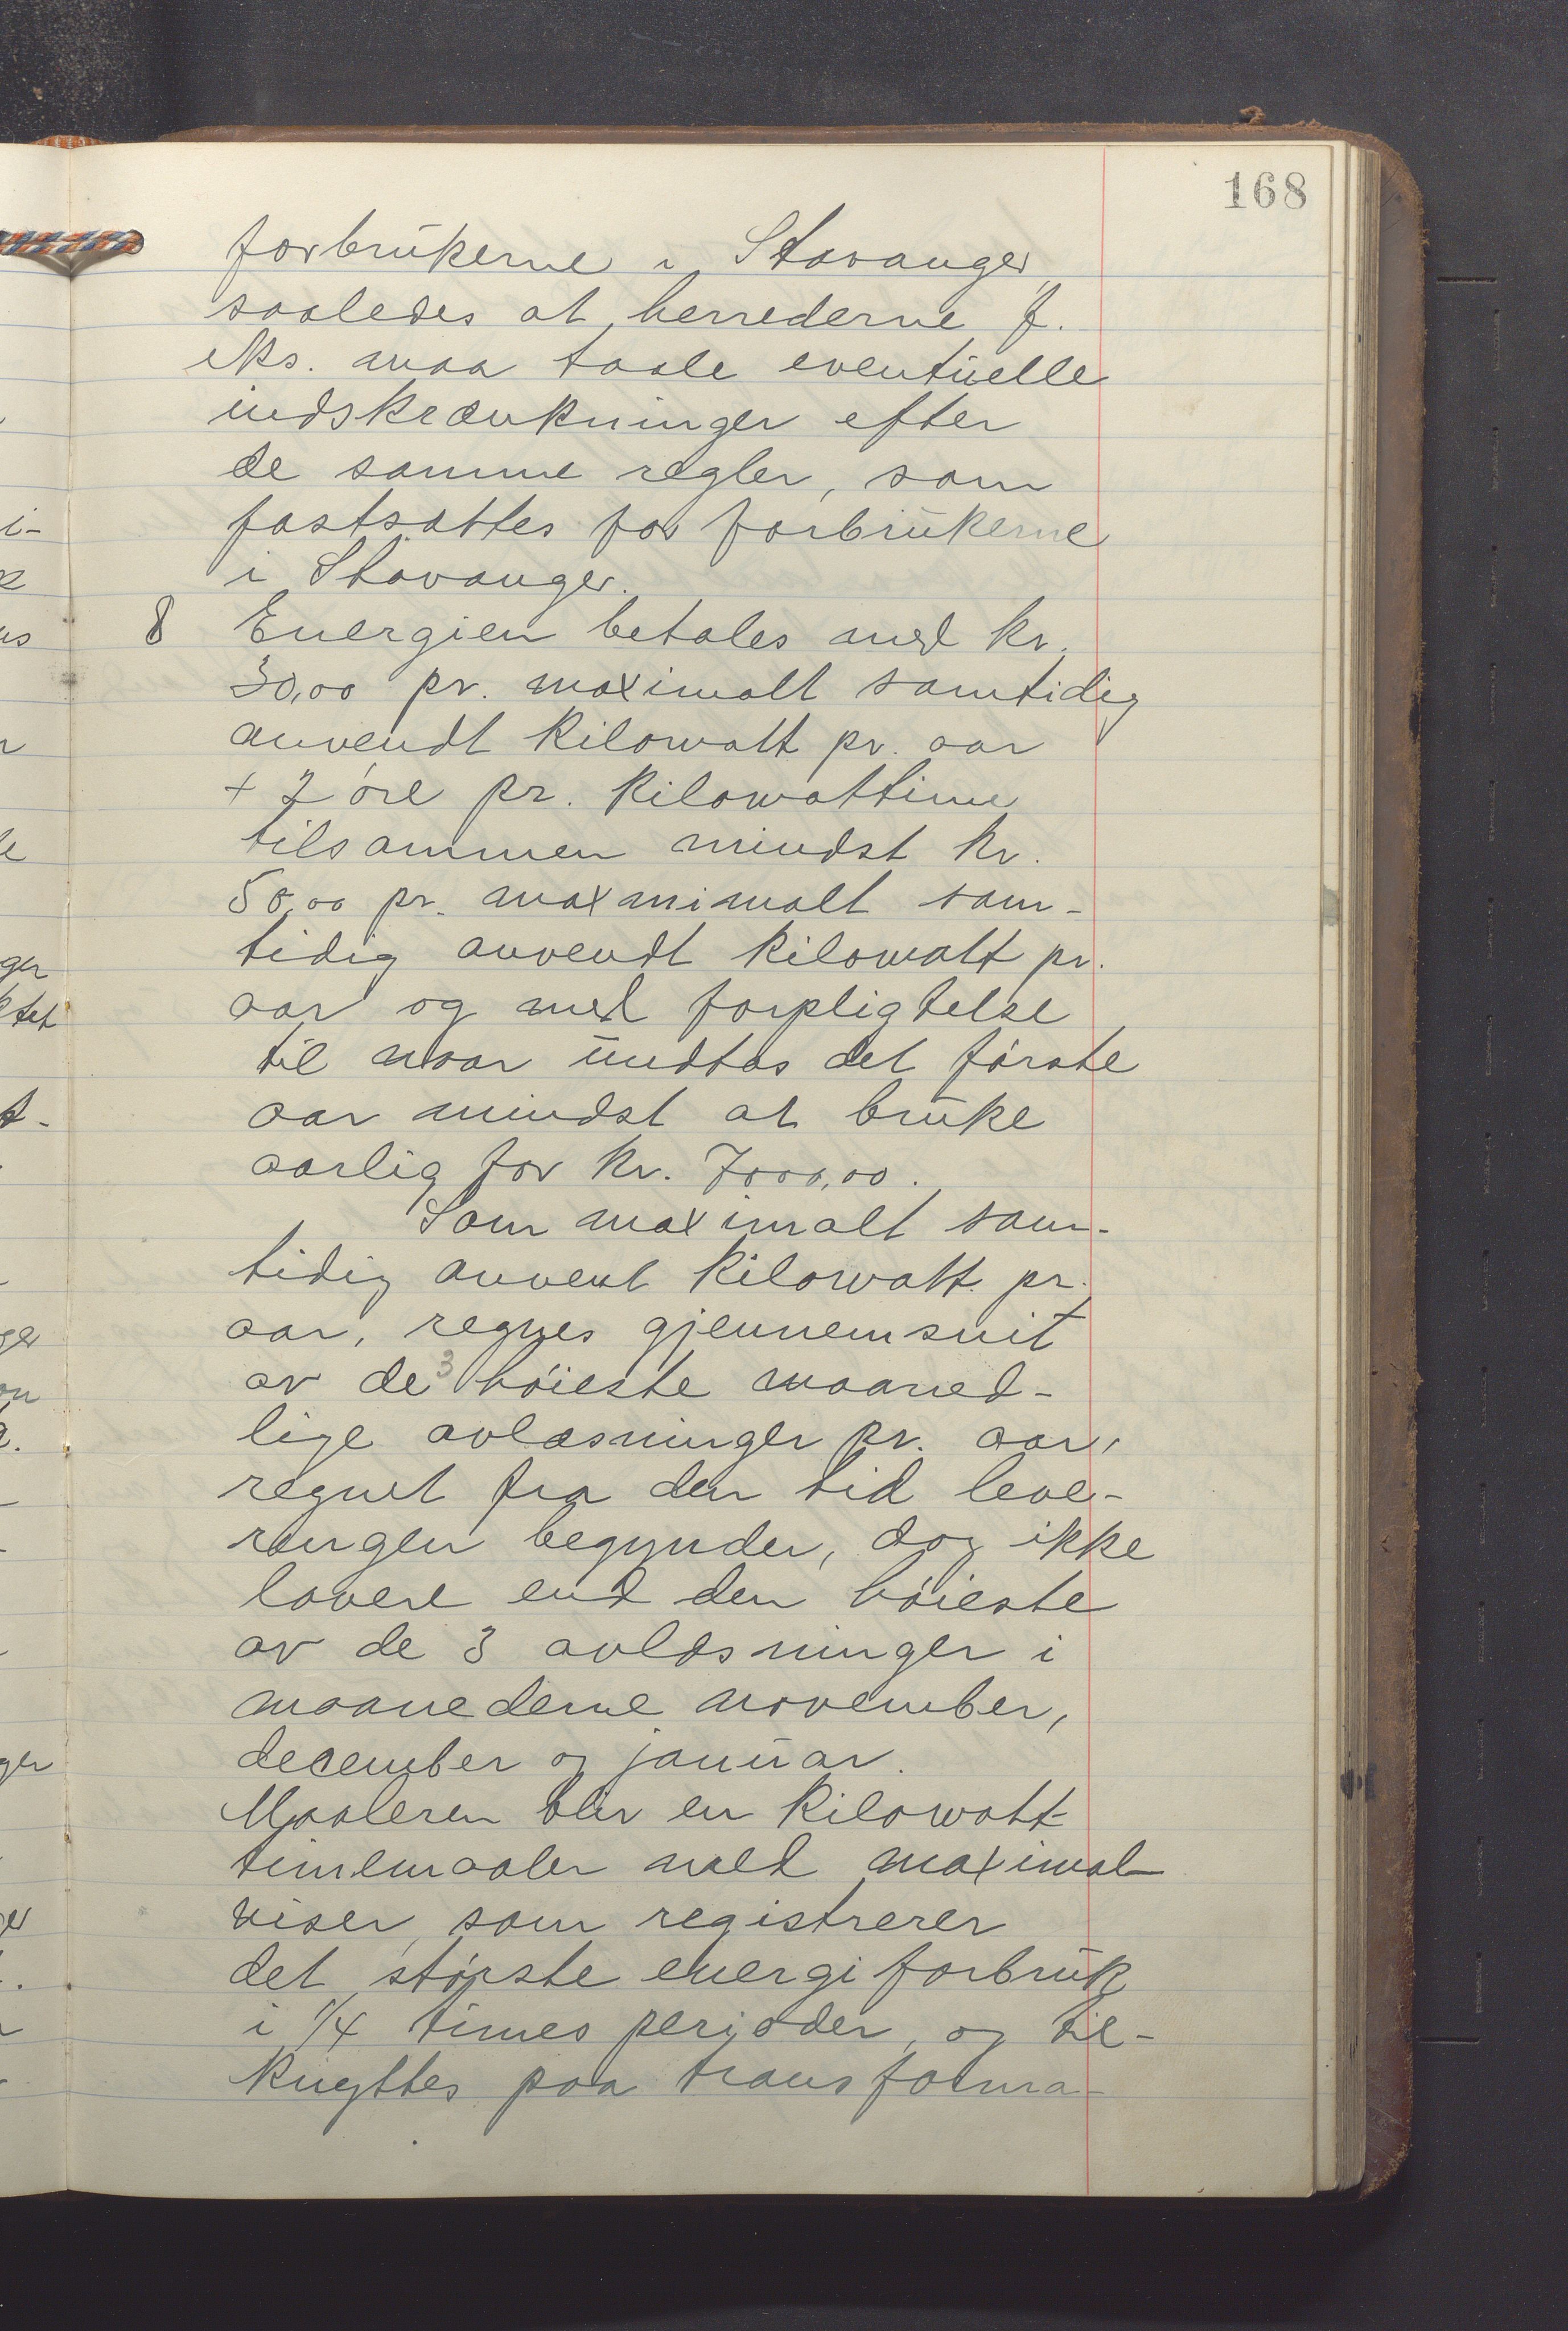 168
forbrukerne i Stavanger,
saaledes at herrederne f.
eks. maa taale eventuelle
indskrænkninger efter
de samme regler, som
fastsattes for forbrukerne
i Stavanger.
8 Energien betales med kr.
30,00 pr. maximalt samtidig
anvendt kilowatt pr. aar
+ 7 øre pr. kilowattime
tilsammen mindst kr.
50,00 pr. maxmimalt sam-
tidig anvendt kilowatt pr.
aar og med forpligtelse
til naar undtas det første
aar mindst at bruke
aarlig for kr. 7000,00.
Som maximalt sam-
tidig anvent kilowatt pr.
aar, regnes gjennemsnit
av de 3 høieste maaned-
lige avlæsninger pr. aar,
regnet fra den tid leve-
ringen begynder, dog ikke
lavere end den høieste
av de 3 avlæsninger i
maanederne november,
december og januar.
Maaleren blir en kilowatt-
timemaaler med maximal-
viser, som registrerer
det største energiforbruk
i 1/4 times perioder, og til-
knyttes paa transforma-